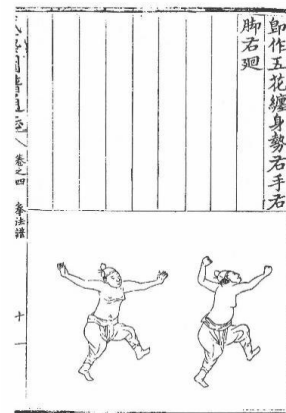 卽作五花纏身勢右手右
脚右廻
卷之四
拳法譜
十一